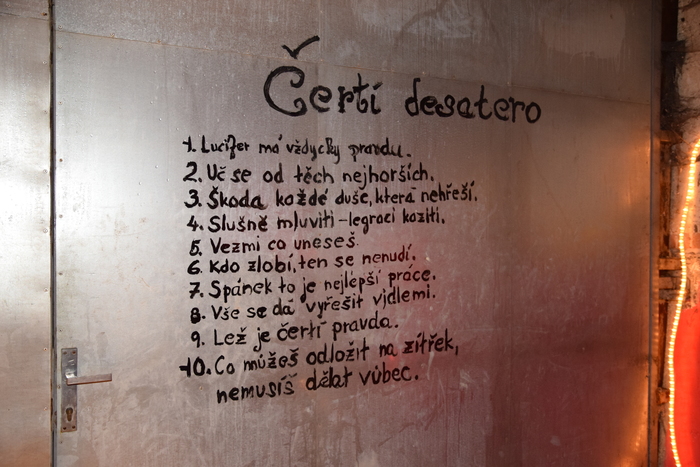 Čertí desatero
1. Lucifer má vždycky pravdu.
2. Uč se od těch nejhorších.
3. Škoda každé duše, která nehřeší.
4. Slušně mluviti - legraci kaziti.
5. Vezmi co uneseš.
6. Kdo zlobí, ten se nenudí.
7. Spánek to je nejlepší práce.
8. Vše se dá vyřešit vidlemi.
9. Lež je čertí pravda.
10. Co můžeš odložit na zítřek,
nemusíš dělat vůbec.